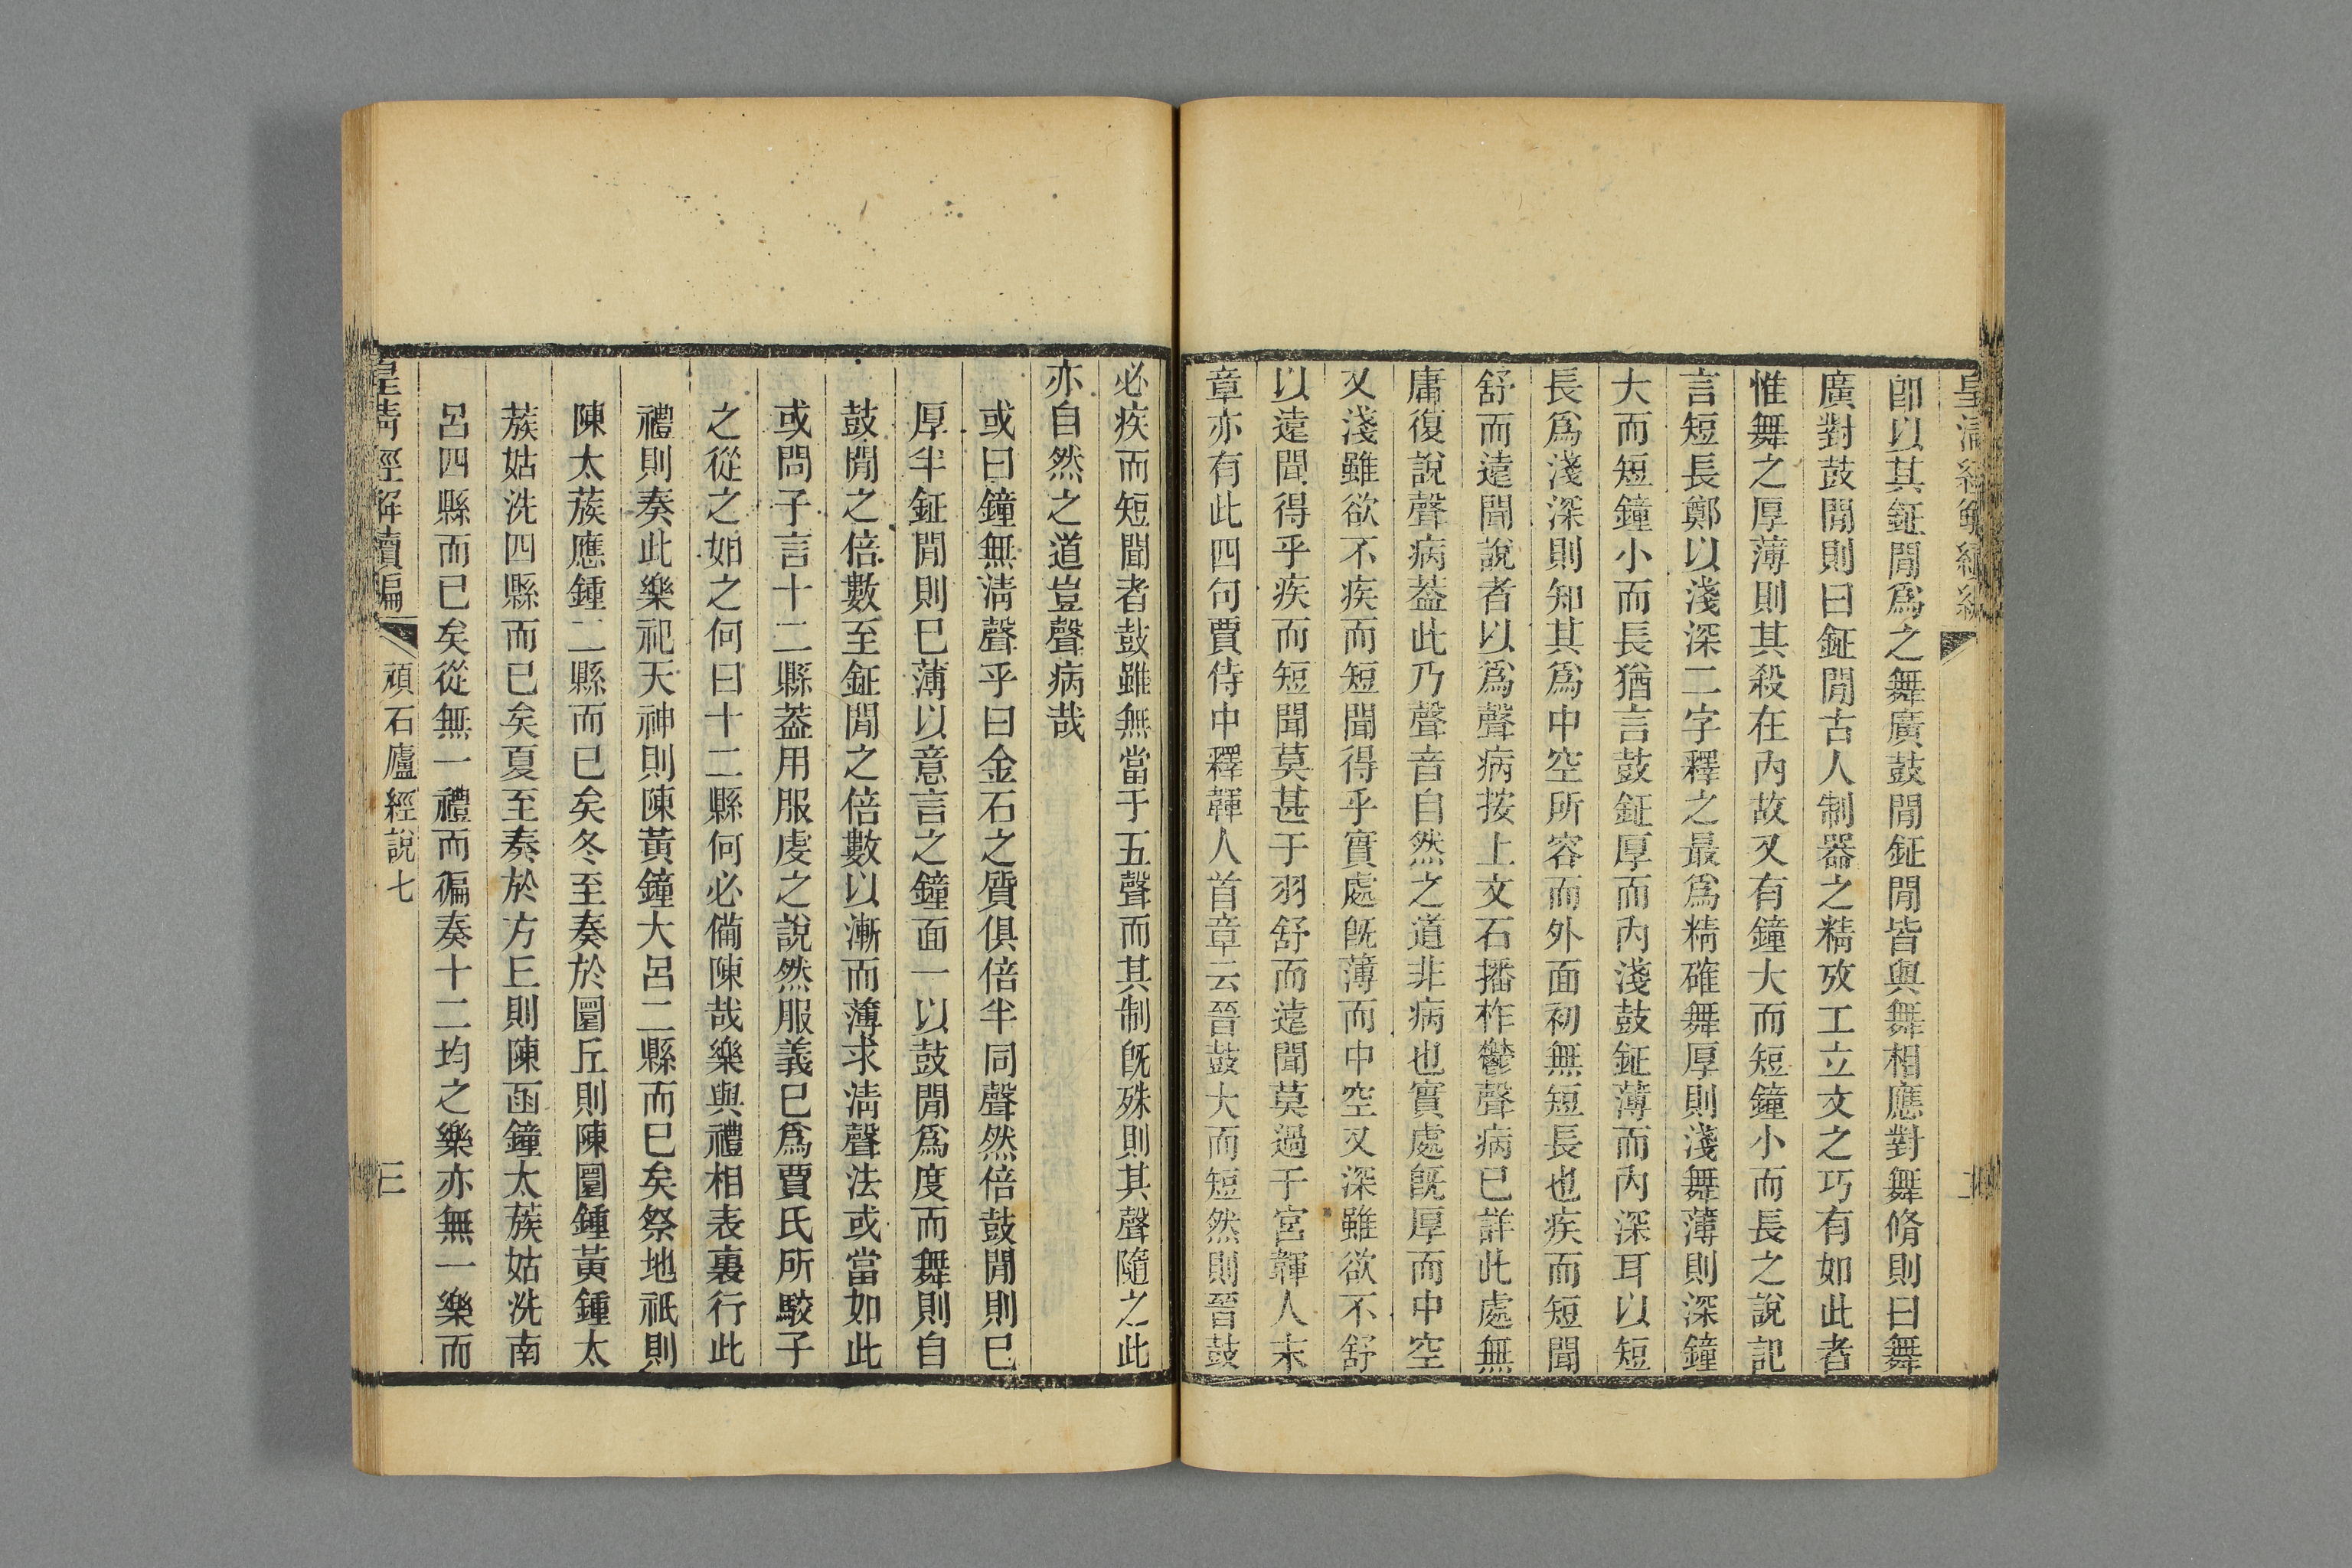 卽以其鉦閒爲之舞廣鼓閒鉦閒皆與舞相應對舞脩則曰舞
廣對鼓閒則曰鉦閒古人制器之精攷工立文之巧有如此者
惟舞之厚薄則其殺在內故又有鐘大而短鐘小而長之說記
言短長鄭以淺深二字釋之最爲精確舞厚則淺舞薄則深鐘
大而短鐘小而長猶言鼓鉦厚而內淺鼓鉦薄而內深耳以短
長爲淺深則知其爲中空所容而外面初無短長也疾而短聞
舒而遠聞說者以爲聲病按上文石播柞鬱聲病已詳此處無
庸復說聲病葢此乃聲音自然之道非病也實處旣厚而中空
又淺雖欲不疾而短聞得乎實處旣薄而中空又深雖欲不舒
以遠聞得乎疾而短聞莫甚于羽舒而遠聞莫過于宮韗人末
章亦有此四句賈侍中釋韗人首章云晉鼓大而短然則晉鼓
必疾而短聞者鼓雖無當于五聲而其制旣殊則其聲隨之此
亦自然之道豈聲病哉
或曰鐘無淸聲乎曰金石之質俱倍半同聲然倍鼓閒則已
厚半鉦閒則已薄以意言之鐘面一以鼓閒爲度而舞則自
鼓閒之倍數至鉦閒之倍數以漸而薄求淸聲法或當如此
或問子言十二縣葢用服虔之說然服義已爲賈氏所駮子
之從之如之何曰十二縣何必備陳哉樂與禮相表裏行此
禮則奏此樂祀天神則陳黃鐘大呂二縣而已矣祭地祇則
陳太蔟應鍾二縣而已矣冬至奏於圜丘則陳圜鍾黃鍾太
蔟姑洗四縣而已矣夏至奏於方丘則陳函鐘太蔟姑洗南
呂四縣而已矣從無一禮而徧奏十二均之樂亦無一樂而
皇淸經解續編
頑石廬經說七
三